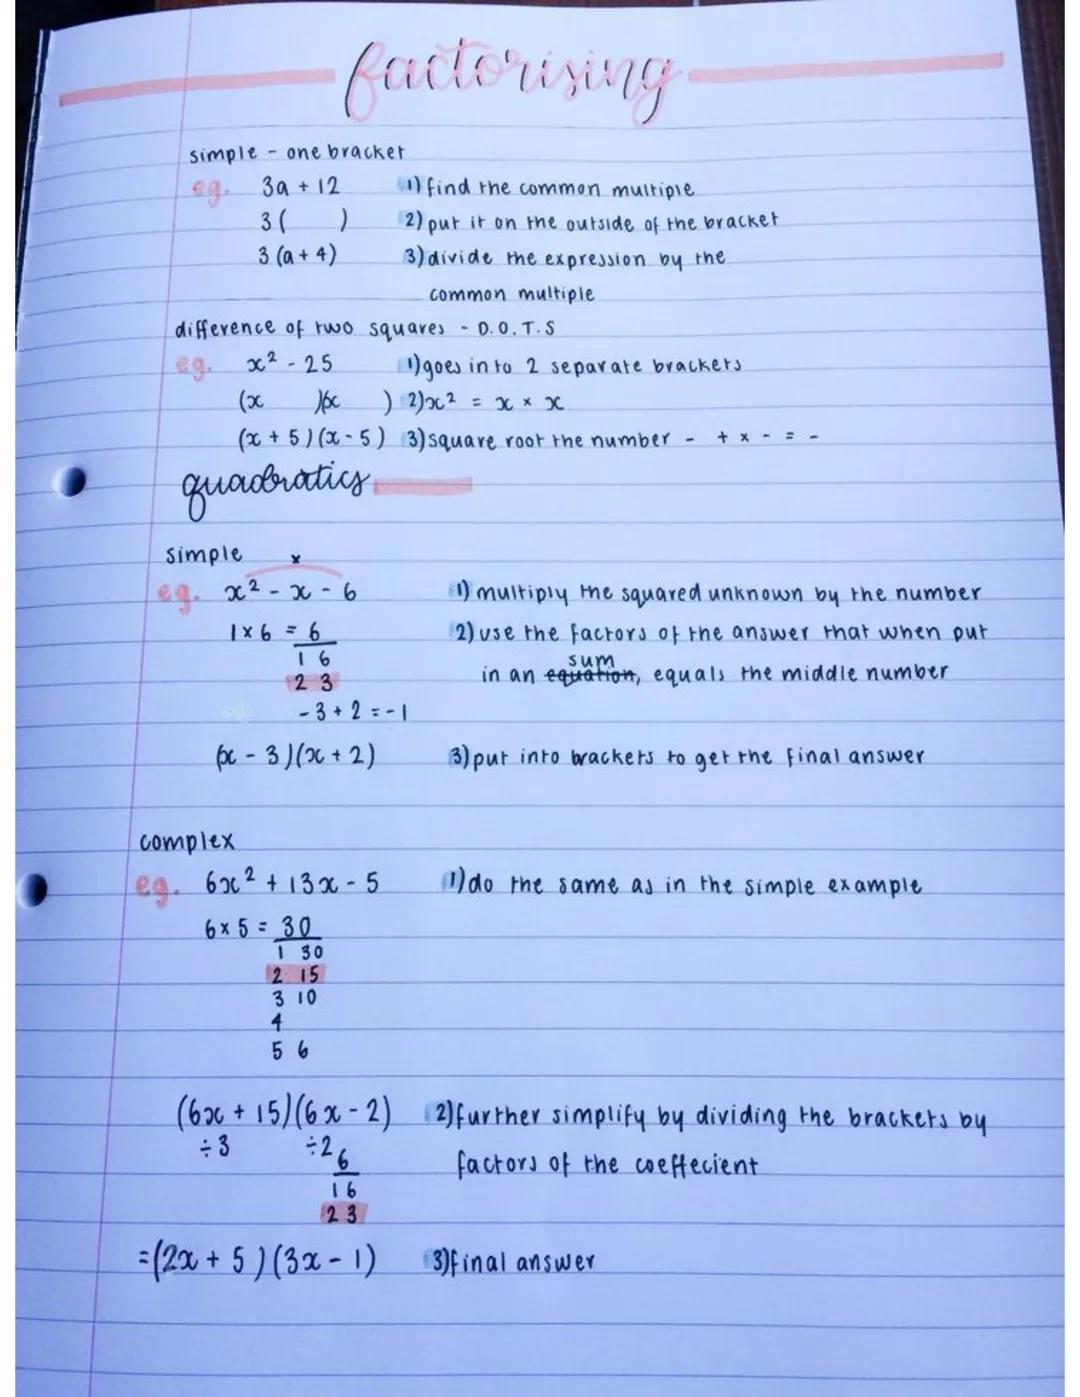 factorising
simple - one bracket
eg. 3a + 12 1) find the common multiple
3( ) 2) put it on the outside of the bracket
3 (a + 4) 3) divide the expression by the
common multiple
difference of two squares - D.O.T.S
eg. x² - 25 1) goes in to 2 separate brackets
(x )(x ) 2) x² = x × x
(x + 5)(x - 5) 3) square root the number - + x - = -
quadratics
simple x
eg. x² - x - 6 1) multiply the squared unknown by the number
1 × 6 = 6 2) use the factors of the answer that when put
1 6 sum
in an equation, equals the middle number
2 3
- 3 + 2 = - 1
(x - 3)(x + 2) 3) put into brackets to get the final answer
complex
eg. 6x² + 13x - 5 1) do the same as in the simple example
6 × 5 = 30
1 30
2 15
3 10
4
5 6
(6x + 15)(6x - 2) 2) further simplify by dividing the brackets by
÷3 ÷2 6 factors of the coeffecient
1 6
2 3
= (2x + 5)(3x - 1) 3) final answer